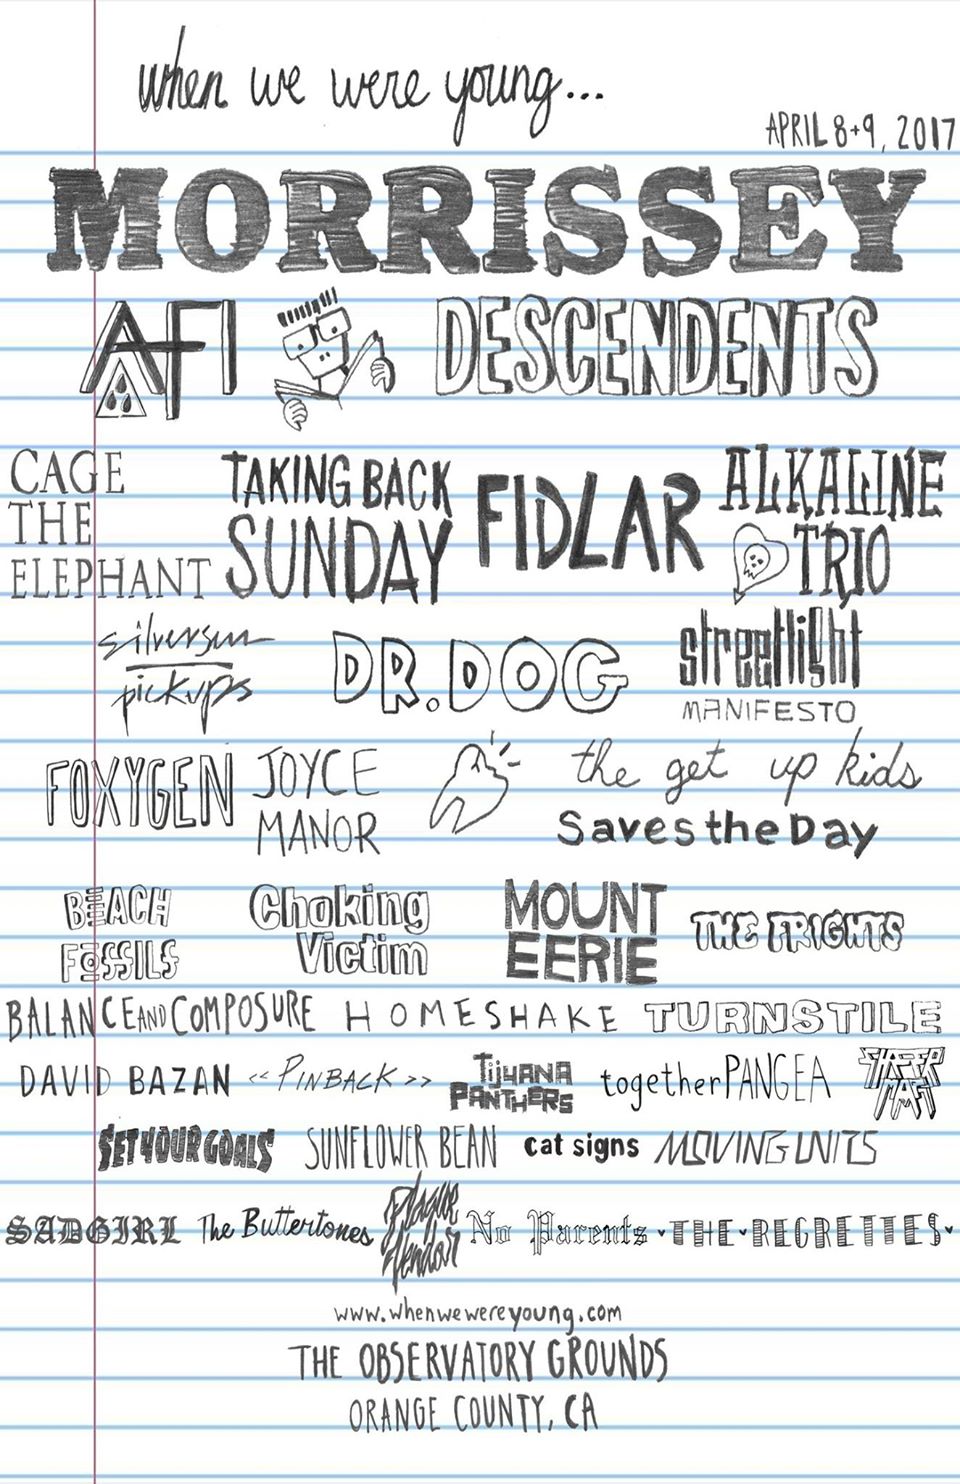 when we were young...
APRIL 8+9, 2017
MORRISSEY
AFI DESCENDENTS
CAGE THE ELEPHANT
TAKING BACK SUNDAY
FIDLAR
ALKALINE TRIO
silversun pickups
DR. DOG
streetlight MANIFESTO
FOXYGEN
JOYCE MANOR
the get up kids
Saves the Day
BEACH FOSSILS
Choking Victim
MOUNT EERIE
THE FRIGHTS
BALANCE AND COMPOSURE HOMESHAKE TURNSTILE
DAVID BAZAN << PINBACK >> TIJUANA PANTHERS togetherPANGEA SHEER MAG
SET YOUR GOALS SUNFLOWER BEAN cat signs MOVING UNITS
SADGIRL The Buttertones Plague Vendor No Parents · THE · REGRETTES ·
www.whenwewereyoung.com
THE OBSERVATORY GROUNDS
ORANGE COUNTY, CA